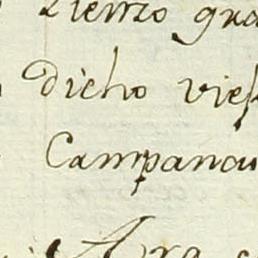 Lienzo gra
dicho vies
Campanari
Ara